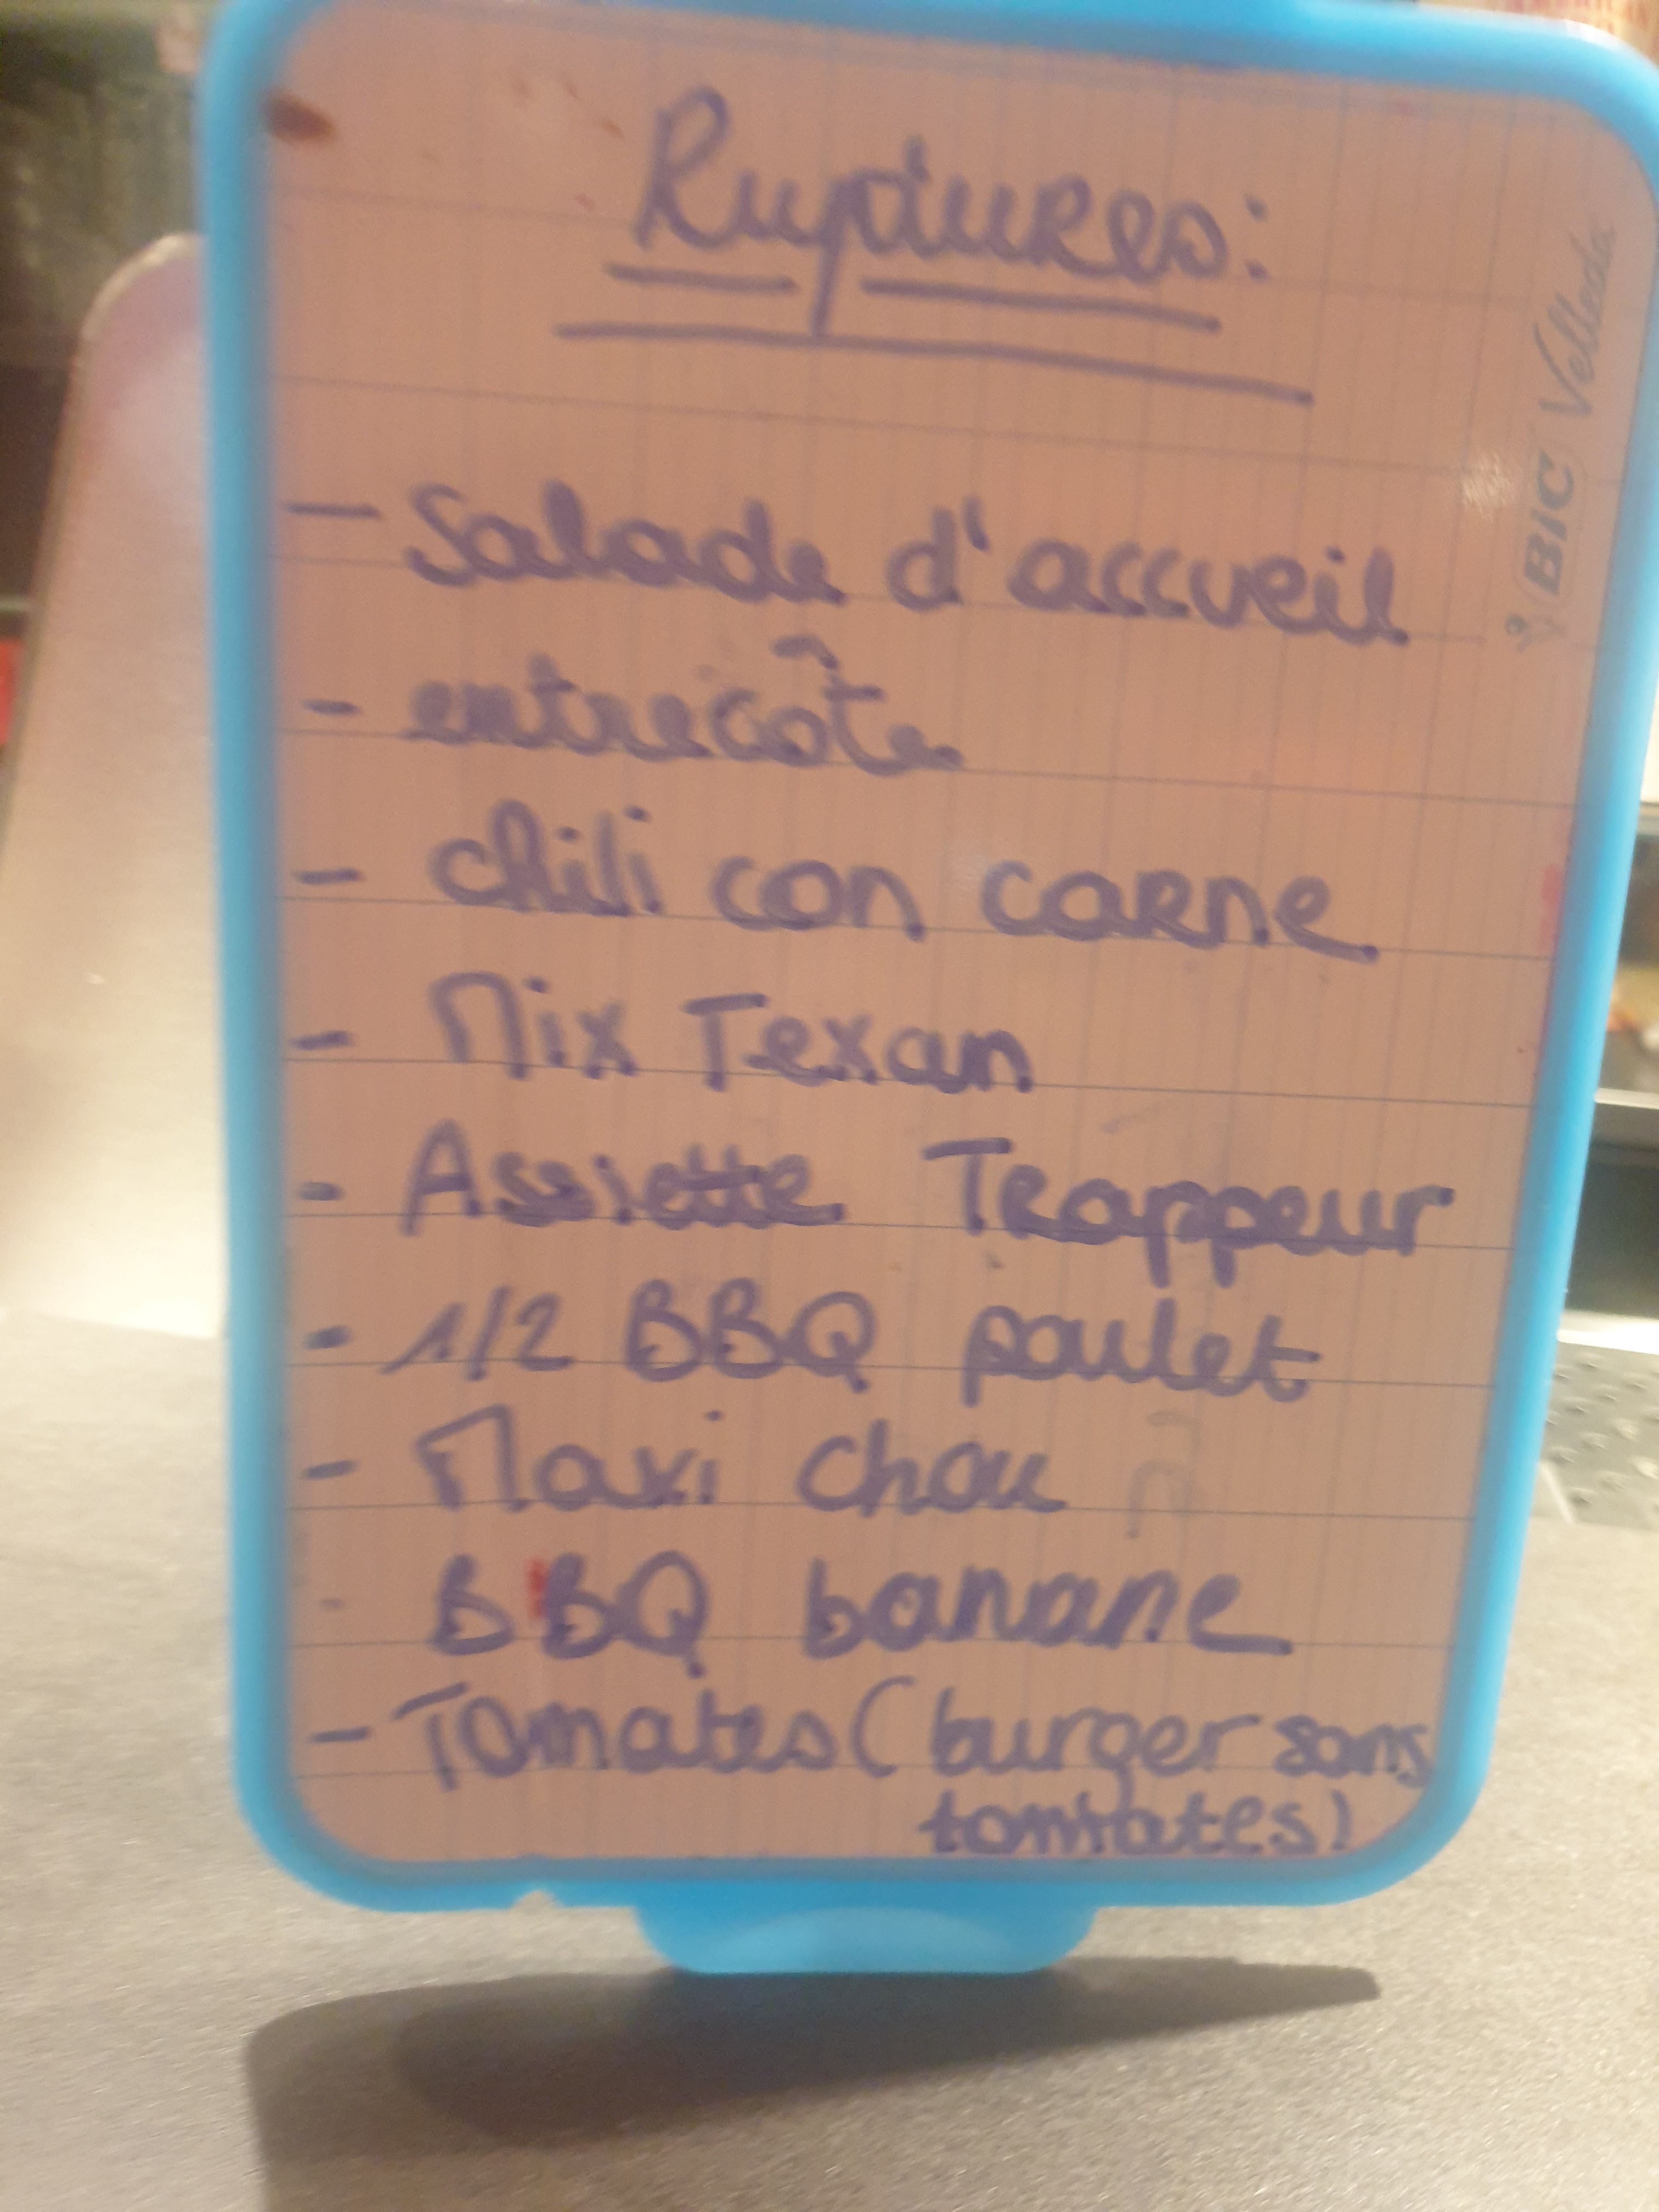 Ruptures:
BIC Velleda
- Salade d'accueil
- entrecôte
- chili con carne
- Mix Texan
- Assiette Trappeur
- 1/2 BBQ poulet
- Maxi chou
- BBQ banane
- Tomates (burger sans
tomates)